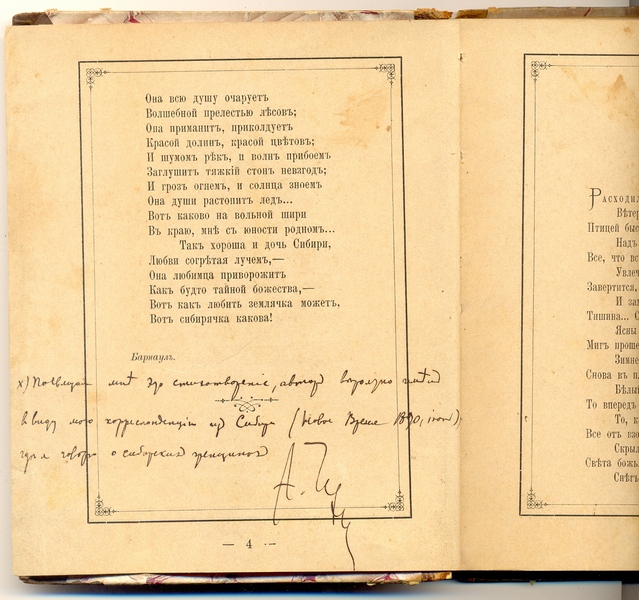 Она всю душу очаруетъ
Волшебной прелестью лѣсовъ;
Она приманитъ, приколдуетъ
Красой долинъ, красой цвѣтовъ;
И шумомъ рѣкъ, и волнъ прибоемъ
Заглушитъ тяжкій стонъ невзгодъ;
И грозъ огнемъ, и солнца зноемъ
Она души растопитъ ледъ...
Вотъ каково на вольной шири
Въ краю, мнѣ съ юности родномъ...
Такъ хороша и дочь Сибири,
Любви согрѣтая лучемъ,—
Она любимца приворожитъ
Какъ будто тайной божества,—
Вотъ какъ любить землячка можетъ,
Вотъ сибирячка какова!
Барнаулъ.
х) Посвящая мнѣ это стихотвореніе, авторъ вѣроятно имѣлъ
въ виду мою корреспонденцію изъ Сибири (Новое Время 1890, іюнь),
гдѣ я говорю о сибирскихъ женщинахъ
А. Ч
— 4 —
Расходил
Вѣтер
Птицей быс
Надъ
Все, что вс
Увлеч
Завертится,
И зам
Тишина... С
Ясны
Мигъ проше
Зимне
Снова въ пл
Бѣлы
То впередъ
То, к
Все отъ взо
Скрыл
Свѣта божь
Снѣгъ